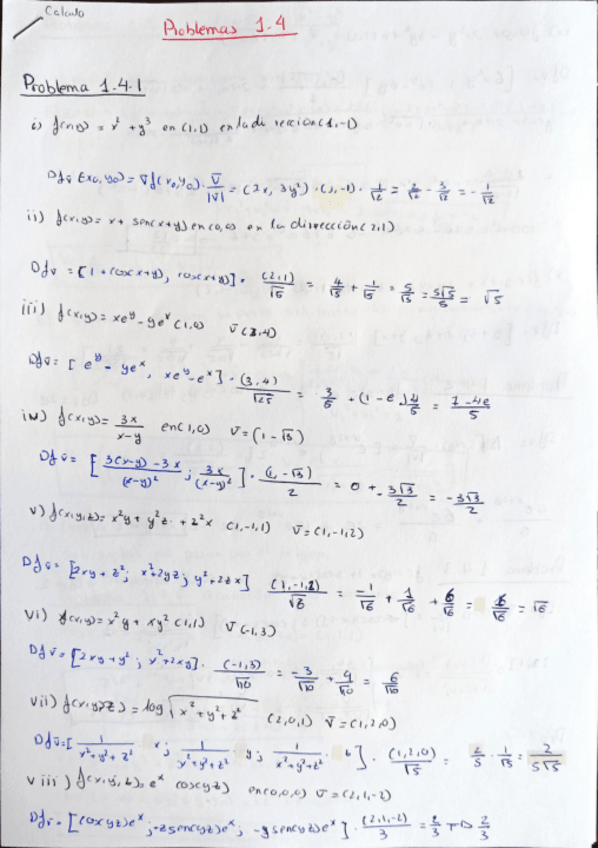 Calculo
Problemas 1.4
Problema 1.4.1
i) f(x,y) = x² + y³ en (1,1) en la dirección (1,-1)
Df_v̄ (x₀,y₀) = ∇f(x₀,y₀) · v̄/|v̄| = (2x, 3y²) · (1,-1) · 1/√2 = 2/√2 - 3/√2 = -1/√2
ii) f(x,y) = x + sen(x+y) en (0,0) en la dirección (2,1)
Df_v̄ = [1 + cos(x+y), cos(x+y)] · (2,1)/√5 = 4/√5 + 1/√5 = 5/√5 = 5√5/5 = √5
iii) f(x,y) = xe^y - ye^x (1,0) v̄(3,4)
Df_v̄ = [e^y - ye^x, xe^y - e^x] · (3,4)/√25 = 3/5 + (1-e)4/5 = 7-4e/5
iv) f(x,y) = 3x/x-y en (1,0) v̄ = (1-√3)
Df_v̄ = [3(x-y)-3x/(x-y)²; 3x/(x-y)²] · (1,-√3)/2 = 0 + -3√3/2 = -3√3/2
v) f(x,y,z) = x²y + y²z + z²x (1,-1,1) v̄ = (1,-1,2)
Df_v̄ = [2xy + z²; x²+2yz; y²+2zx] (1,-1,2)/√6 = -1/√6 + 1/√6 + 6/√6 = 6/√6 = √6
vi) f(x,y) = x²y + xy² (1,1) v̄(-1,3)
Df_v̄ = [2xy+y²; x²+2xy] · (-1,3)/√10 = -3/√10 + 9/√10 = 6/√10
vii) f(x,y,z) = log √x²+y²+z² (2,0,1) v̄ = (1,2,0)
Df_v̄ = [1/x²+y²+z² x; 1/x²+y²+z² y; 1/x²+y²+z² ] · (1,2,0)/√5 = 2/5 · 1/√5 = 2/5√5
viii) f(x,y,z) = e^x cos(yz) en (0,0,0) v̄ = (2,1,-2)
Df_v̄ = [cos yz)e^x; -z sen(yz)e^x; -y sen(yz)e^x] · (2,1,-2)/3 = 2/3 → 2/3